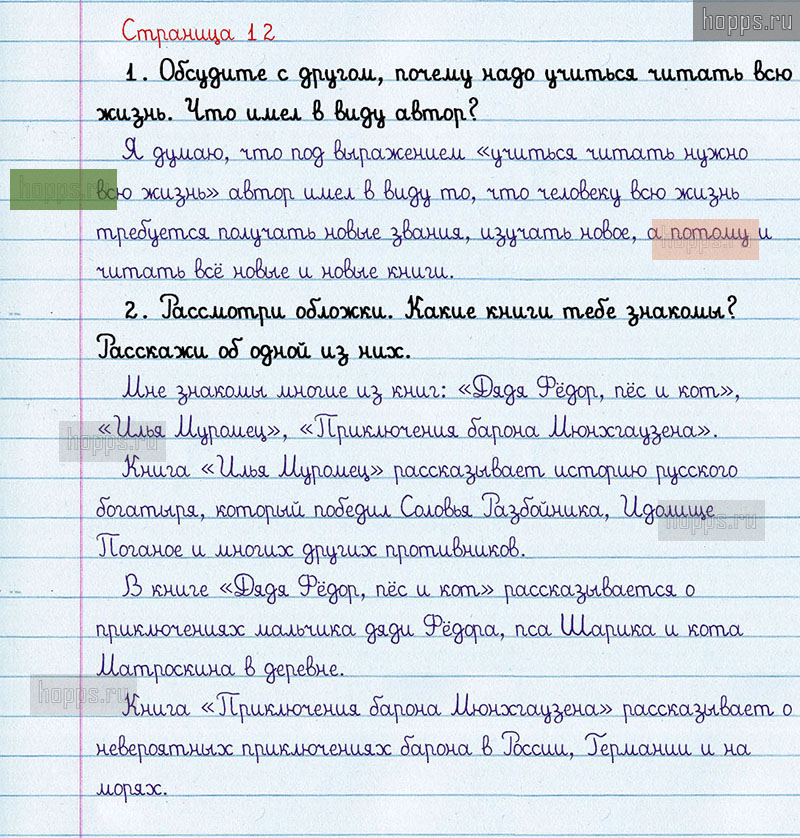 hopps.ru
Страница 12
1. Обсудите с другом, почему надо учиться читать всю
жизнь. Что имел в виду автор?
Я думаю, что под выражением «учиться читать нужно
hopps.ru
всю жизнь» автор имел в виду то, что человеку всю жизнь
требуется получать новые звания, изучать новое, а потому и
hopps.ru
читать всё новые и новые книги.
2. Рассмотри обложки. Какие книги тебе знакомы?
Расскажи об одной из них.
Мне знакомы многие из книг: «Дядя Фёдор, пёс и кот»,
«Илья Муромец», «Приключения барона Мюнхгаузена».
hopps.ru
Книга «Илья Муромец» рассказывает историю русского
богатыря, который победил Соловья Разбойника, Идолище
hopps.ru
Поганое и многих других противников.
В книге «Дядя Фёдор, пёс и кот» рассказывается о
приключениях мальчика дяди Фёдора, пса Шарика и кота
Матроскина в деревне.
hopps.ru
Книга «Приключения барона Мюнхгаузена» рассказывает о
невероятных приключениях барона в России, Германии и на
морях.